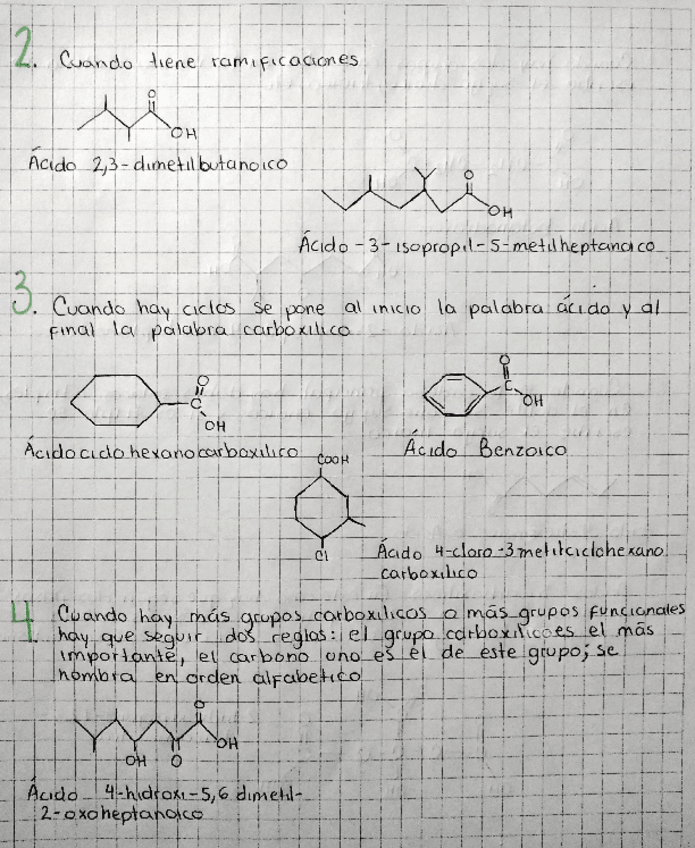 2. Cuando tiene ramificaciones
O
OH
Ácido 2,3-dimetilbutanoico
O
OH
Ácido -3-isopropil-5-metilheptanoico
3. Cuando hay ciclos se pone al inicio la palabra ácido y al
final la palabra carboxilico
O
C
OH
Ácido ciclohexanocarboxilico
O
C
OH
Ácido Benzoico
COOH
Cl
Ácido 4-cloro-3metilciclohexano
carboxilico
4. Cuando hay más grupos carboxilicos o más grupos funcionales
hay que seguir dos reglas: el grupo carboxilico es el más
importante, el carbono uno es el de este grupo; se
nombra en orden alfabetico
O
OH
OH O
Ácido 4-hidroxi-5,6 dimetil-
2-oxoheptanoico